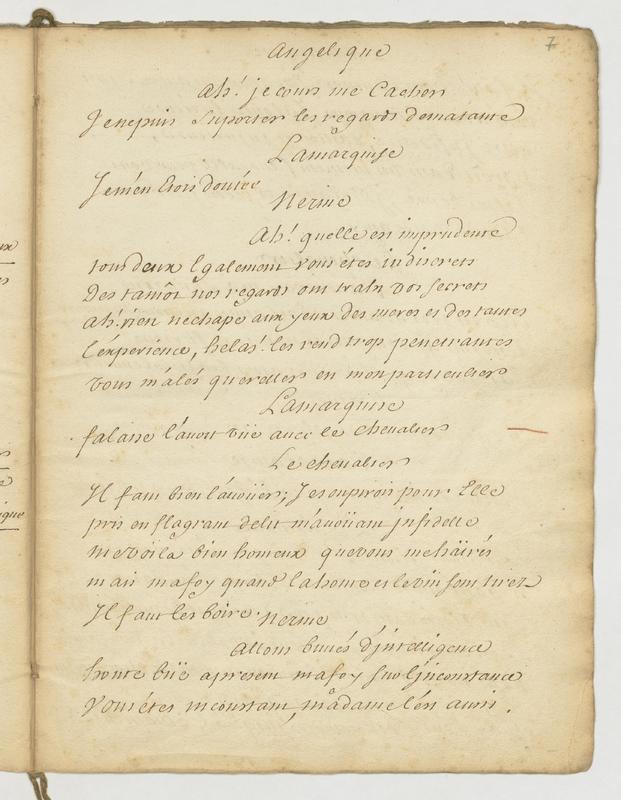 7
Angelique
Ah! je cours me Cacher
Je nepuis Suporter les regards dematante
Lamarquise
Jem'en Crois douter
Nerine
Ah! quelle en imprudente
tous deux Egalement vous étes indiscrets
Des tantôt nos regards ont trahi vos secrets
Ah! rien nechape aux yeux des meres et des tantes
l'éxperience, helas! les rend trop penetrantes
Vous m'alés quereller en mon particulier
Lamarquise
falaise l'avoit vüe avec le chevalier
Le chevalier
Il faut bien l'avoüer; Je soupirois pour Elle
pris en flagrant delit m'avoüant jnfidelle
me voilà bien honteux que vous me haïrés
mais mafoy quand la honte et le vin sont tirez
Il faut les boire.
Nerine
Allons buvés d'jntelligence
honte büe apresent mafoy sur l'jnconstance
Vous étes inconstant, madame l'ést aussi.